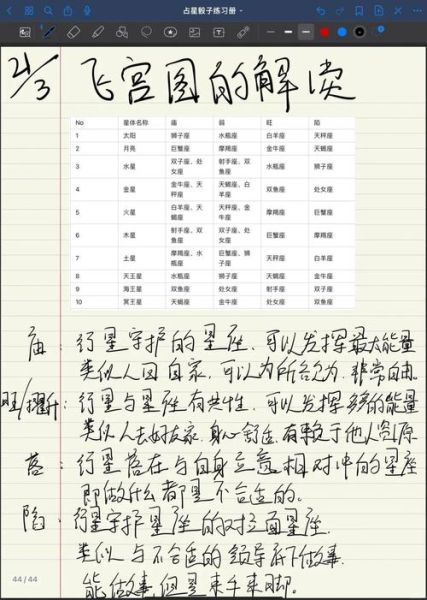 占星骰子练习册
21/3 飞宫图的解读
No 星体名称 庙 弱 旺 陷
1 太阳 狮子座 水瓶座 白羊座 天秤座
2 月亮 巨蟹座 摩羯座 金牛座 天蝎座
3 水星 双子座、处女座 射手座、双鱼座 水瓶座 狮子座
4 金星 金牛座、天秤座 天蝎座、白羊座 双鱼座 处女座
5 火星 白羊座、天蝎座 天秤座、金牛座 摩羯座 巨蟹座
6 木星 射手座、双鱼座 双子座、处女座 巨蟹座 摩羯座
7 土星 摩羯座、水瓶座 巨蟹座、狮子座 天秤座 白羊座
8 天王星 水瓶座 狮子座 天蝎座 金牛座
9 海王星 双鱼座 处女座 射手座 双子座
10 冥王星 天蝎座 金牛座 处女座 双鱼座
庙：行星守护的星座，可以发挥最大能量
类似人回自家，可以为所欲为，非常自由
旺/擢升：行星与星座有共性，可以发挥多的能量
类似人去好友家，身心舒适，有事於于他人资源
落：行星落在与自身立意相对冲的星座
即做什么都是不合适的。
陷：行星守护星座的对立面星座，
类似与不合适的领导底下做事
能做事但是束手束脚。
44 / 44